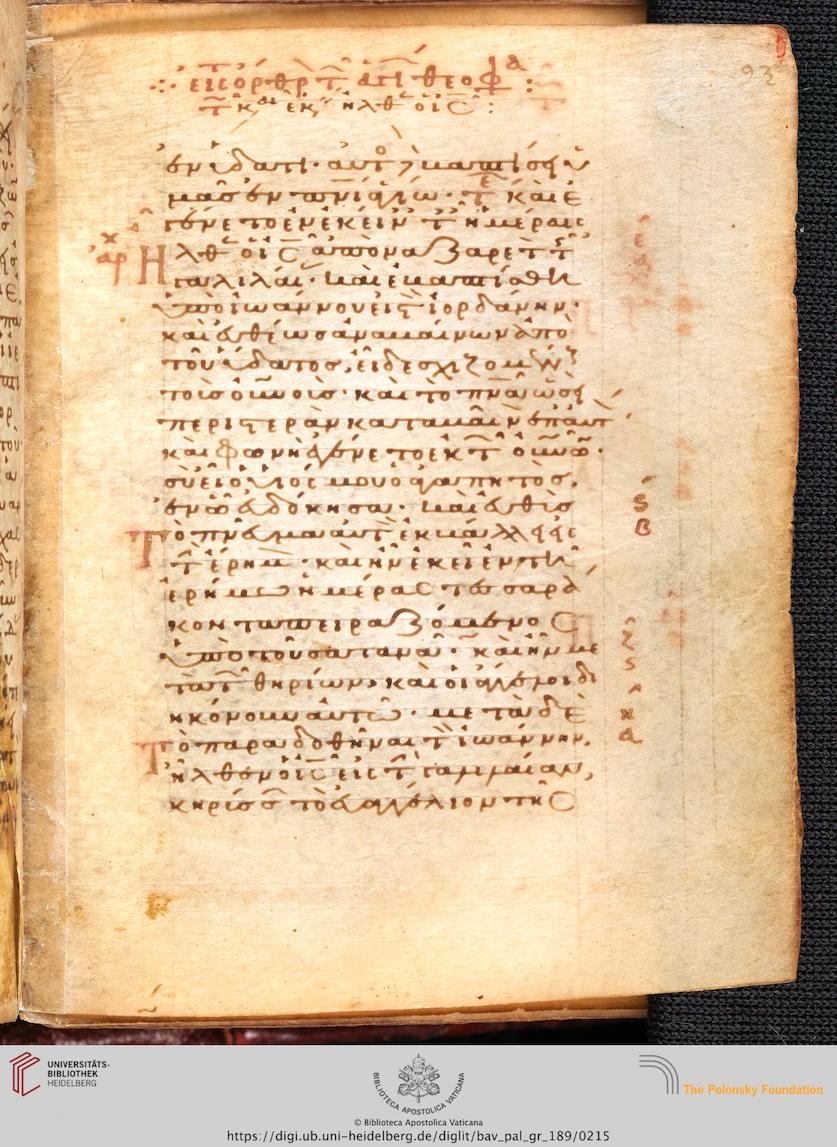 εἰς ὄρθρ τ ἁγι θεοφα
τ κ ἐκ ἦλθ ὁ ις :
ἐν ὕδατι· αὐτο βαπτίσει ὑ
μᾶς ἐν πνι ἁγίω· τε καὶ ἐ
γένετο ἐν ἐκείν τ ἡμέραις
αρχ Ηλθ ὁ ις ἀπὸ ναζαρὲτ τ
γαλιλαι· καὶ ἐβαπτίσθη
ὑπὸ ἰωάννου εἰς τ ἰορδάνην·
καὶ εὐθέως ἀναβαίνων ἀπὸ
τοῦ ὕδατος, εἶδε σχιζομέν
τοὺς οὐνοὺς· καὶ τὸ πνα ὡσεὶ
περιστερὰν καταβαῖν ἐπ αὐτ
καὶ φωνὴ ἐγένετο ἐκ τ οὐνῶ·
σὺ εἶ ὁ υἱός μου ὁ ἀγαπητὸς,
ἐν ὧ εὐδόκησα· καὶ εὐθὺς
ς
β
Τὸ πνεῦμα αὐτ ἐκβάλλει εἰς
τ ἔρημ· καὶ ἦν ἐκεῖ ἐν τῆ
ἐρήμω ἡμέρας τεσσαρά
κοντα πειραζόμενος
ὑπὸ τοῦ σατανᾶ· καὶ ἦν με
ζ
ς
τὰ τ θηρίων, καὶ οἱ ἄγγελοι δι
ηκόνουν αὐτῶ· μετὰ δὲ
η
δ
Τὸ παραδοθῆναι τ ἰωάννην,
ἦλθεν ὁ ις εἰς τ γαλιλαίαν,
κηρύσσ τὸ εὐαγγέλιον τῆς
93
UNIVERSITÄTS-
BIBLIOTHEK
HEIDELBERG
BIBLIOTECA APOSTOLICA VATICANA
The Polonsky Foundation
© Biblioteca Apostolica Vaticana
https://digi.ub.uni-heidelberg.de/diglit/bav_pal_gr_189/0215